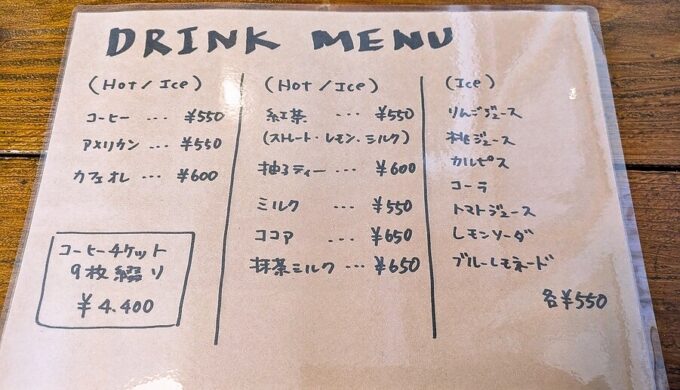 DRINK MENU
(HOT / Ice)
コーヒー … ¥550
アメリカン … ¥550
カフェオレ … ¥600
コーヒーチケット
9枚綴り
¥4.400
(HOT / Ice)
紅茶 … ¥550
(ストレート・レモン・ミルク)
柚子ティー … ¥600
ミルク … ¥550
ココア … ¥650
抹茶ミルク … ¥650
(Ice)
りんごジュース
桃ジュース
カルピス
コーラ
トマトジュース
レモンソーダ
ブルーレモネード
各¥550